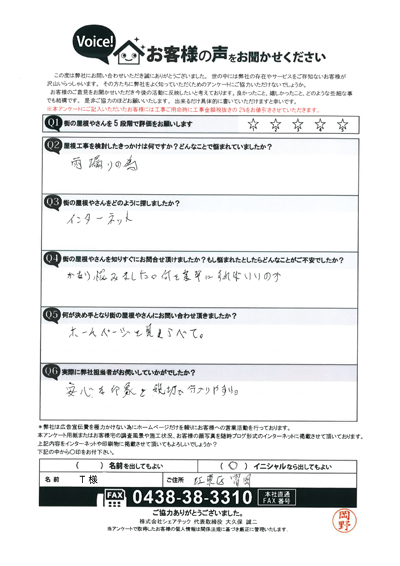 Voice!
お客様の声をお聞かせください
この度は弊社にお問い合わせいただき誠にありがとうございました。世の中には弊社の存在やサービスをご存知ないお客様が
沢山いらっしゃいます。その方たちに弊社をよく知っていただくためのアンケートにご協力いただけないでしょうか。
お客様のご意見をお聞かせいただき今後の活動に反映したいと考えております。良かったこと、嬉しかったこと、どのような些細な事
でも結構です。是非ご協力のほどお願いいたします。出来るだけ具体的に書いていただけますと幸いです。
※本アンケートにご記入いただいたお客様には工事ご用命時に工事金額税抜きの2%をお値引きさせていただきます。
Q1 街の屋根やさんを5段階で評価をお願いします ☆ ☆ ☆ ☆ ☆
Q2 屋根工事を検討したきっかけは何ですか?どんなことで悩まれていましたか?
雨漏りの為
Q3 街の屋根やさんをどのように探しましたか?
インターネット
Q4 街の屋根やさんを知りすぐにお問合せ頂けましたか?もし悩まれたとしたらどんなことがご不安でしたか?
かなり悩みました。何を基準に
Q5 何が決め手となり街の屋根やさんにお問い合わせ頂きましたか?
ホームページを見くらべて。
Q6 実際に弊社担当者がお伺いしていかがでしたか?
安心な印象と親切
*弊社は広告宣伝費を極力かけない為にホームページだけを頼りにお客様への営業活動を行っております。
本アンケート用紙またはお客様宅の調査風景や施工状況、お客様の顔写真を随時ブログ形式のインターネットに掲載させて頂いております。
上記内容をインターネットや印刷物に掲載させて頂いてもよろしいでしょうか?
下記の中から○印をお付け下さい。
( ) 名前を出してもよい ( ○ ) イニシャルなら出してもよい
名前 T様 ご住所 江東区
FAX 0438-38-3310 本社直通 FAX番号
ご協力ありがとうございました。
株式会社シェアテック 代表取締役 大久保 誠二
※アンケートで取得したお客様の個人情報は関係法規に基づき厳正に管理いたします。
岡野